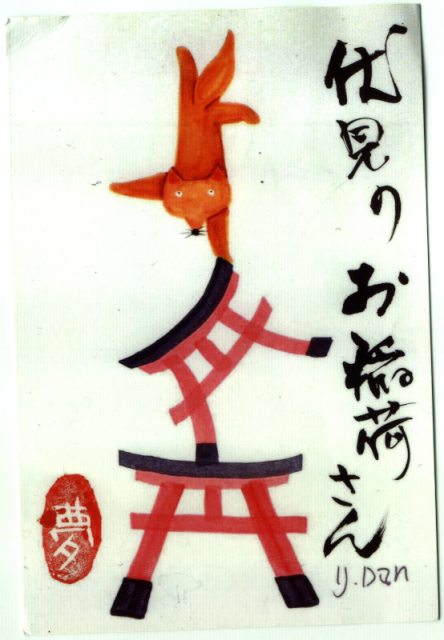 伏見のお稲荷さん
y.Dan
夢